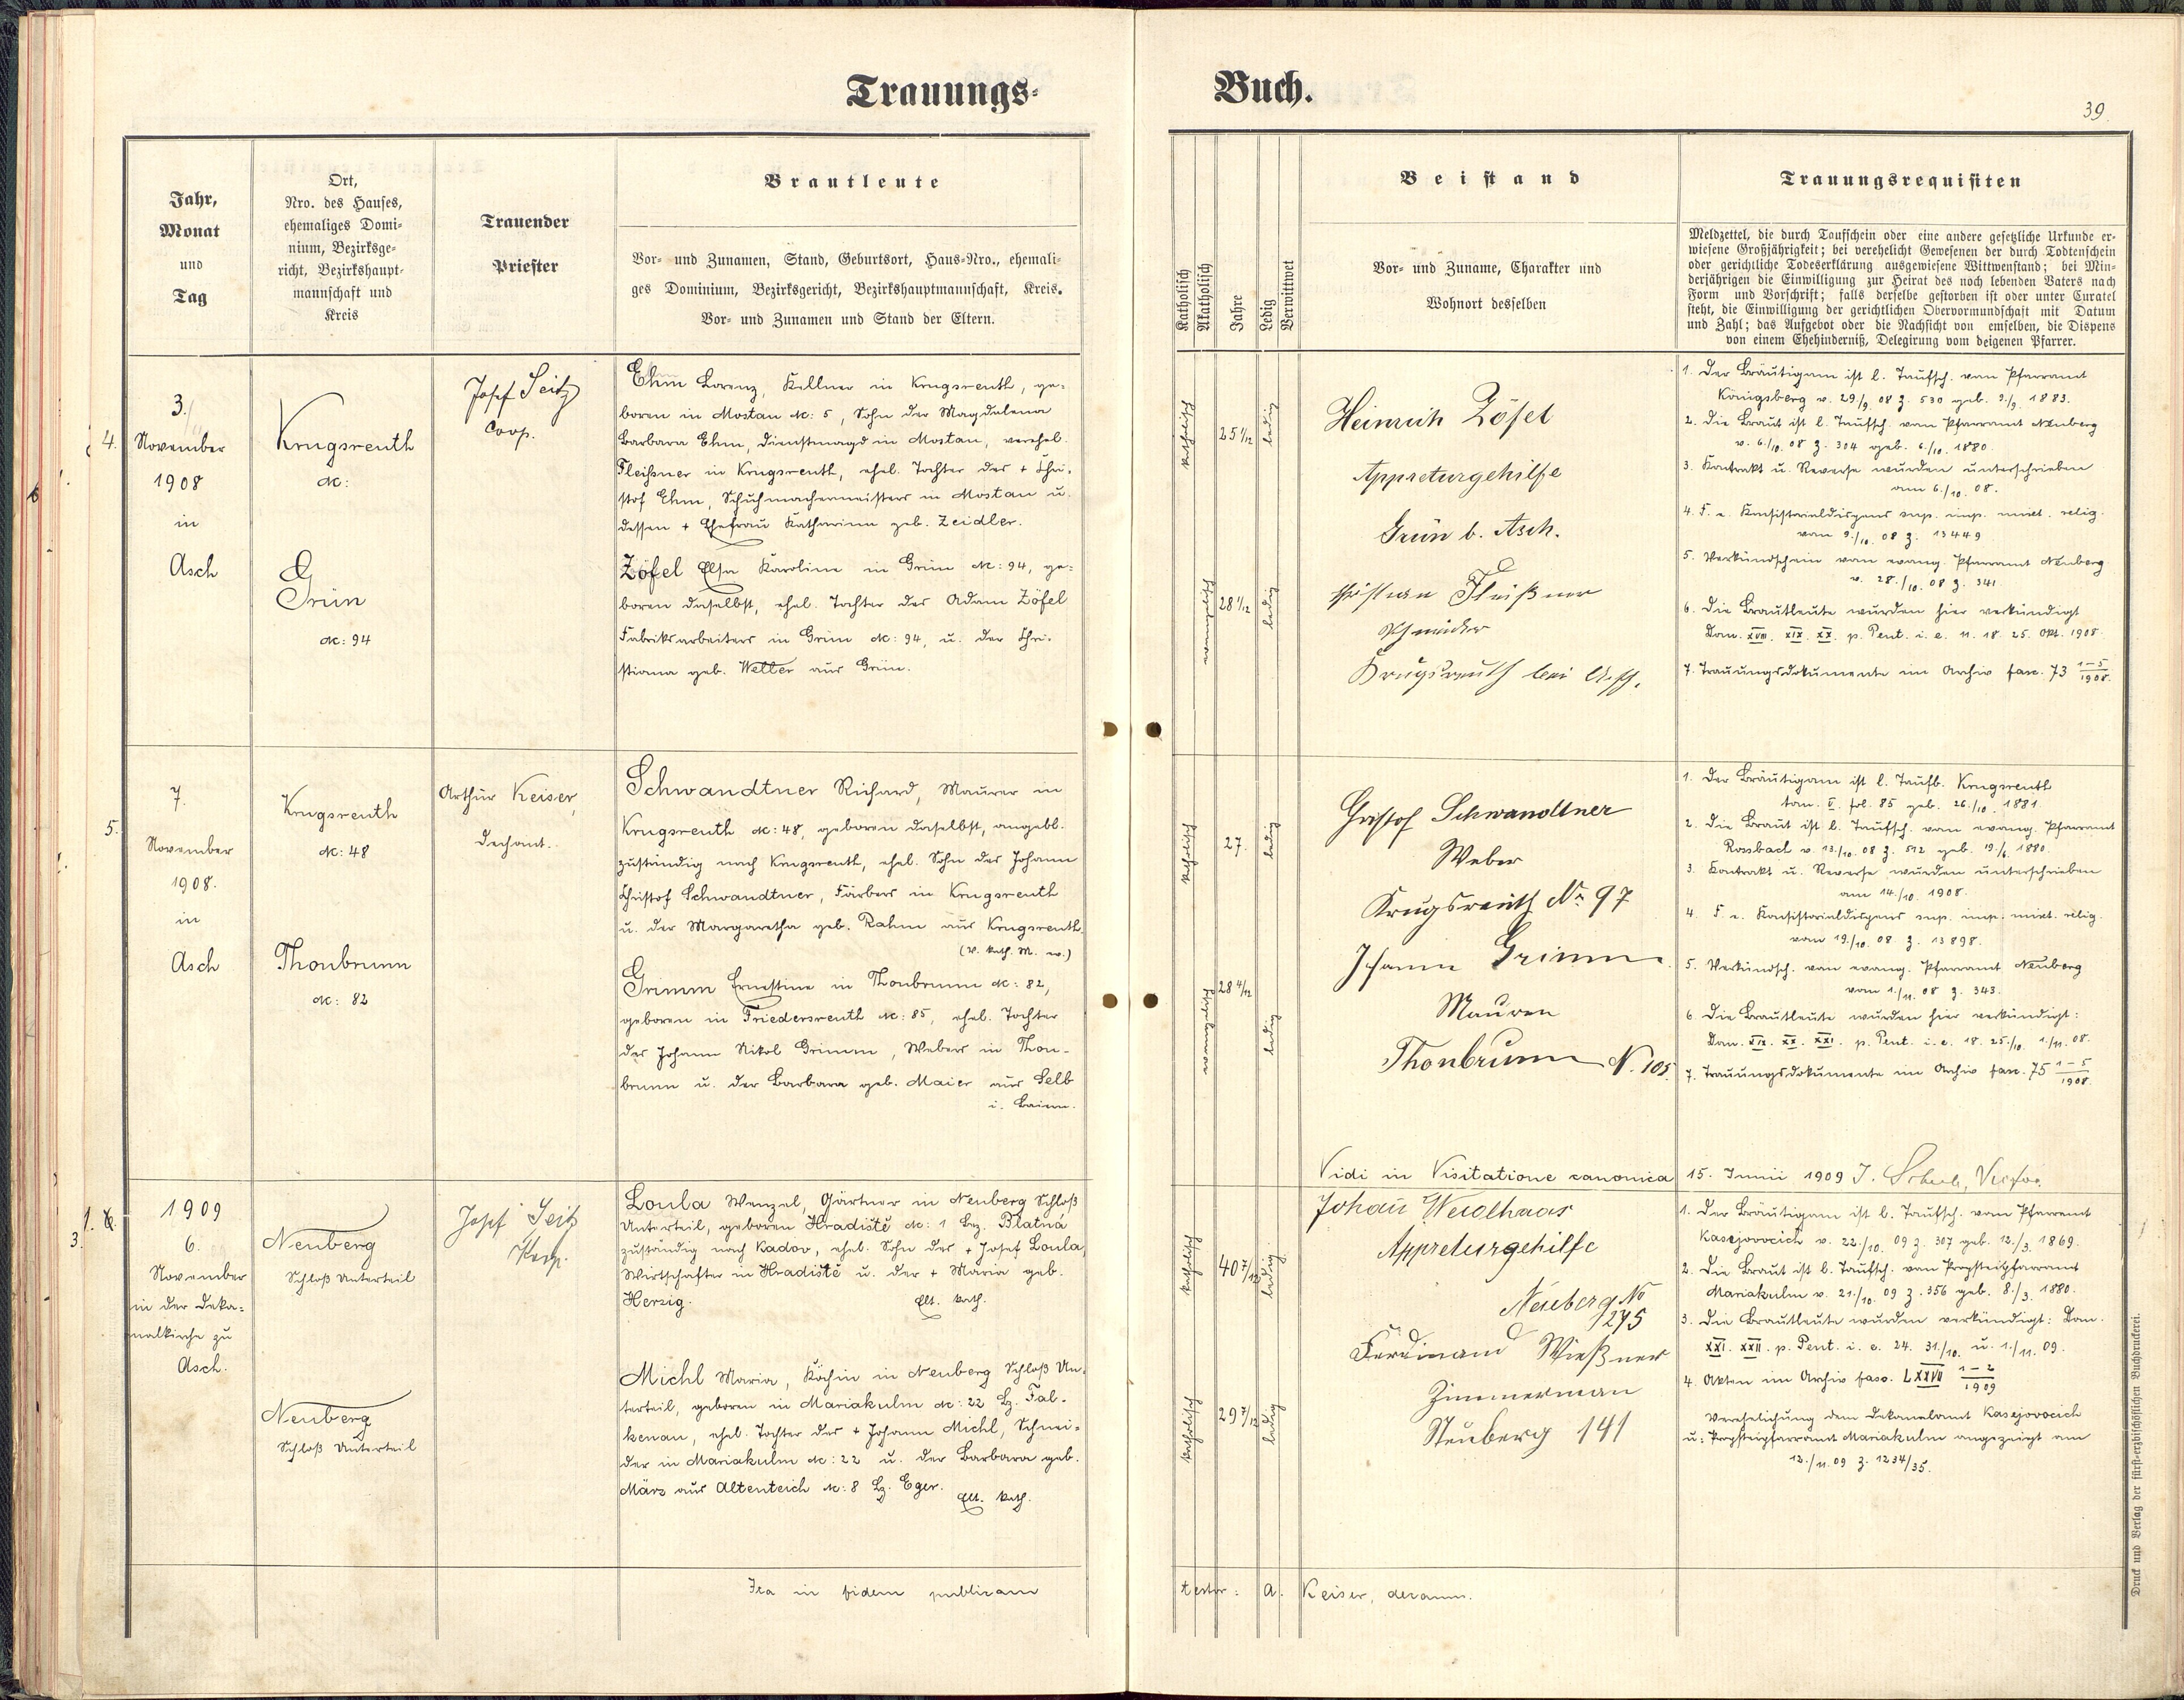 Trauungs-
Buch.
39.
Jahr,
Monat
und
Tag
Ort,
Nro. des Hauses,
ehemaliges Domi-
nium, Bezirksge-
richt, Bezirkshaupt-
mannschaft und
Kreis
Trauender
Priester
Brautleute
Vor- und Zunamen, Stand, Geburtsort, Haus-Nro., ehemali-
ges Dominium, Bezirksgericht, Bezirkshauptmannschaft, Kreis.
Vor- und Zunamen und Stand der Eltern.
Katholisch
Akatholisch
Jahre
Ledig
Verwittwet
Beistand
Vor- und Zuname, Charakter und
Wohnort desselben
Trauungsrequisiten
Meldzettel, die durch Taufschein oder eine andere gesetzliche Urkunde er-
wiesene Großjährigkeit; bei verehelicht Gewesenen der durch Todtenschein
oder gerichtliche Todeserklärung ausgewiesene Wittwenstand; bei Min-
derjährigen die Einwilligung zur Heirat des noch lebenden Vaters nach
Form und Vorschrift; falls derselbe gestorben ist oder unter Curatel
steht, die Einwilligung der gerichtlichen Obervormundschaft mit Datum
und Zahl; das Aufgebot oder die Nachsicht von emselben, die Dispens
von einem Ehehinderniß, Delegirung vom deigenen Pfarrer.
4.
3./
November
1908
in
Asch
Krugsreuth
Nc:
Grün
Nc: 94
Josef Seitz
Coop.
Ehm Lorenz, Kellner in Krugsreuth, ge-
boren in Mostau Nc: 5, Sohn der Magdalena
Barbara Ehm, Dienstmagd in Mostau, verehel.
Fleißner in Krugsreuth, ehel. Tochter des + Chri-
stof Ehm, Schuhmachermeisters in Mostau u.
dessen + Ehefrau Katharina geb. Zeidler.
Zöfel Elsa Karolina in Grün Nc: 94, ge-
boren daselbst, ehel. Tochter des Adam Zöfel
Fabriksarbeiters in Grün Nc: 94, u. der Chri-
stiana geb. Wettler aus Grün.
katholisch
25 1/12
ledig
28 1/12
ledig
Heinrich Zöfel
Appreturgehilfe
Grün b. Asch.
Christian Fleißner
Krugsreuth bei Asch.
1. Der Bräutigam ist l. Taufsch. vom Pfarramt
Königsberg v. 29./9. 08 Z. 530 geb. 9./9. 1883.
2. Die Braut ist l. Taufsch. vom Pfarramt Neuberg
v. 6./10. 08 Z. 304 geb. 6./10. 1880.
3. Kontrakt u. Reverse wurden unterschrieben
am 6./10. 08.
4. F. e. Konsistorialdispens sup. imp. mixt. relig.
vom 9./10. 08 Z. 13449
5. Verkündschein vom evang. Pfarramt Neuberg
v. 28./10. 08 Z. 341.
6. Die Brautleute wurden hier verkündigt
Dom. XVIII. XIX. XX. p. Pent. i. e. 11. 18. 25. Okt. 1908.
7. Trauungsdokumente im Archiv fasc. 73 1-5/1908.
5.
7.
November
1908.
in
Asch
Krugsreuth
Nc: 48
Thonbrunn
Nc: 82
Arthur Keiser,
Dechant.
Schwandtner Richard, Maurer in
Krugsreuth Nc: 48, geboren daselbst, angebl.
zuständig nach Krugsreuth, ehel. Sohn des Johann
Christof Schwandtner, Färbers in Krugsreuth
u. der Margaretha geb. Rahm aus Krugsreuth.
(V. kath. M. ev.)
Grimm Ernestine in Thonbrunn Nc: 82,
geboren in Friedersreuth Nc: 85, ehel. Tochter
des Johann Nikol Grimm, Webers in Thon-
brunn u. der Barbara geb. Maier aus Selb
i. Baiern.
katholisch
27.
ledig
28 4/12
ledig
Christof Schwandtner
Weber
Krugsreuth No 97
Johann Grimm
Maurer
Thonbrunn N. 105.
1. Der Bräutigam ist l. Taufb. Krugsreuth
tom. V. fol. 85 geb. 26./10. 1881.
2. Die Braut ist l. Taufsch. vom evang. Pfarramt
Rossbach v. 13./10. 08 Z. 512 geb. 19./6. 1880.
3. Kontrakt u. Reverse wurden unterschrieben
am 14./10. 1908.
4. F. e. Konsistorialdispens sup. imp. mixt. relig.
vom 19./10. 08 Z. 13898.
5. Verkündsch. vom evang. Pfarramt Neuberg
vom 1./11. 08 Z. 343.
6. Die Brautleute wurden hier verkündigt:
Dom. XIX. XX. XXI. p. Pent. i. e. 18. 25./10. 1./11. 08.
7. Trauungsdokumente im Archiv fasc. 75 1-5/1908.
Vidi in Visitatione canonica 15. Junii 1909
1. 6.
3.
1909
6.
November
in der Deka-
nalkirche zu
Asch.
Neuberg
Schloß Unterteil
Neuberg
Schloß Unterteil
Josef Seitz
Koop.
Loula Wenzel, Gärtner in Neuberg Schloß
Unterteil, geboren Hradiště Nc: 1 Bez. Blatná
zuständig nach Kadov, ehel. Sohn des + Josef Loula,
Wirtschafter in Hradiště u. der + Maria geb.
Herzig. Elt. kath.
Michl Maria, Köchin in Neuberg Schloß Un-
terteil, geboren in Mariakulm Nc: 22 Bz. Fal-
kenau, ehel. Tochter des + Johann Michl, Schnei-
der in Mariakulm Nc: 22 u. der Barbara geb.
März aus Altenteich Nc: 8 Bz. Eger. Elt. kath.
katholisch
40 7/12
ledig
katholisch
29 7/12
ledig
Johan Weidlhaas
Appreturgehilfe
Neuberg No
275
Ferdinand Wießner
Zimmerman
Neuberg 141
1. Der Bräutigam ist l. Taufsch. vom Pfarramt
Kasejovocich v. 22./10. 09 Z. 307 geb. 12./3. 1869.
2. Die Braut ist l. Taufsch. vom Propsteipfarramt
Mariakulm v. 21./10. 09 Z. 356 geb. 8./3. 1880.
3. Die Brautleute wurden verkündigt: Dom.
XXI. XXII. p. Pent. i. e. 24. 31./10. u. 1./11. 09.
4. Akten im Archiv fasc. LXXVII 1-2/1909
Verehelichung dem Dekanalamt Kasejovocich
u. Propsteipfarramt Mariakulm angezeigt am
12./11. 09 Z. 1234/35.
Ita in fidem publicam
testor: A. Keiser, decanus.
Druck und Verlag der fürst-erzbischöflichen Buchdruckerei.